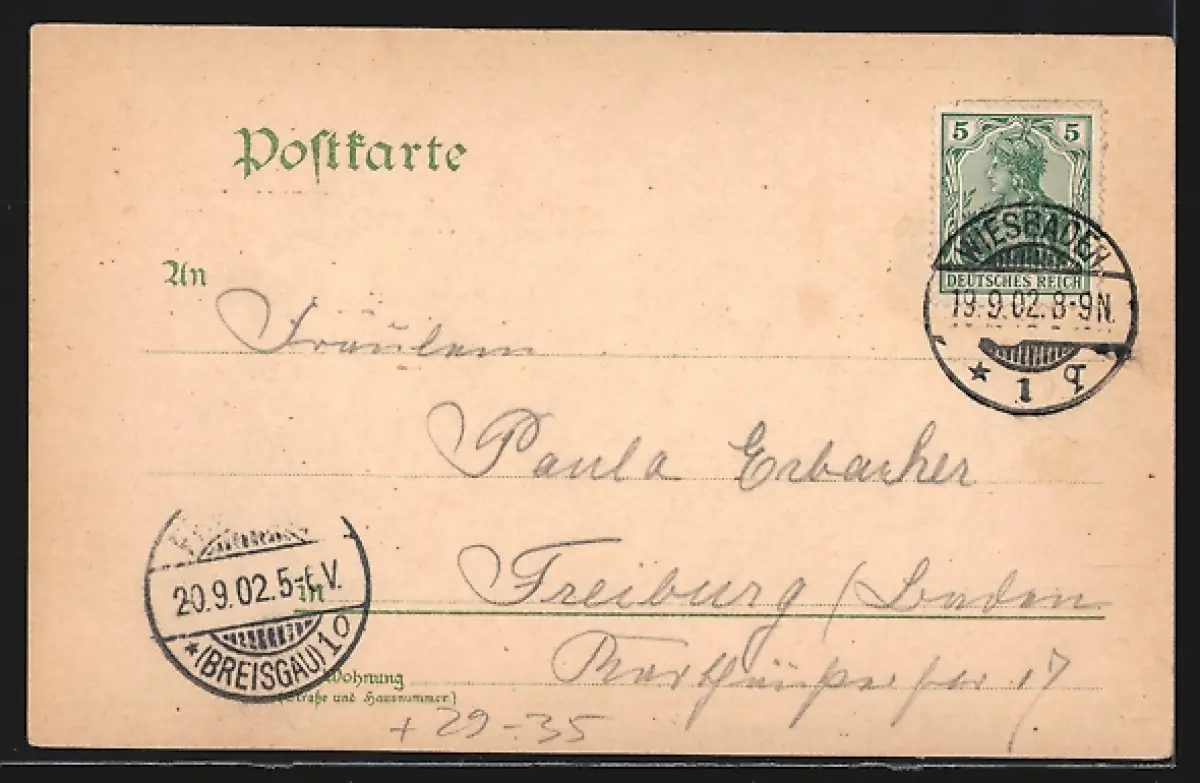 Postkarte
5 5
DEUTSCHES REICH
WIESBADEN
19.9.02. 8-9N.
* 1
An
Fräulein
Paula Erbacher
in Freiburg / Baden
17
Wohnung
(Straße und Hausnummer.)
20.9.02. 5- V.
*(BREISGAU) 1
+ 29-35